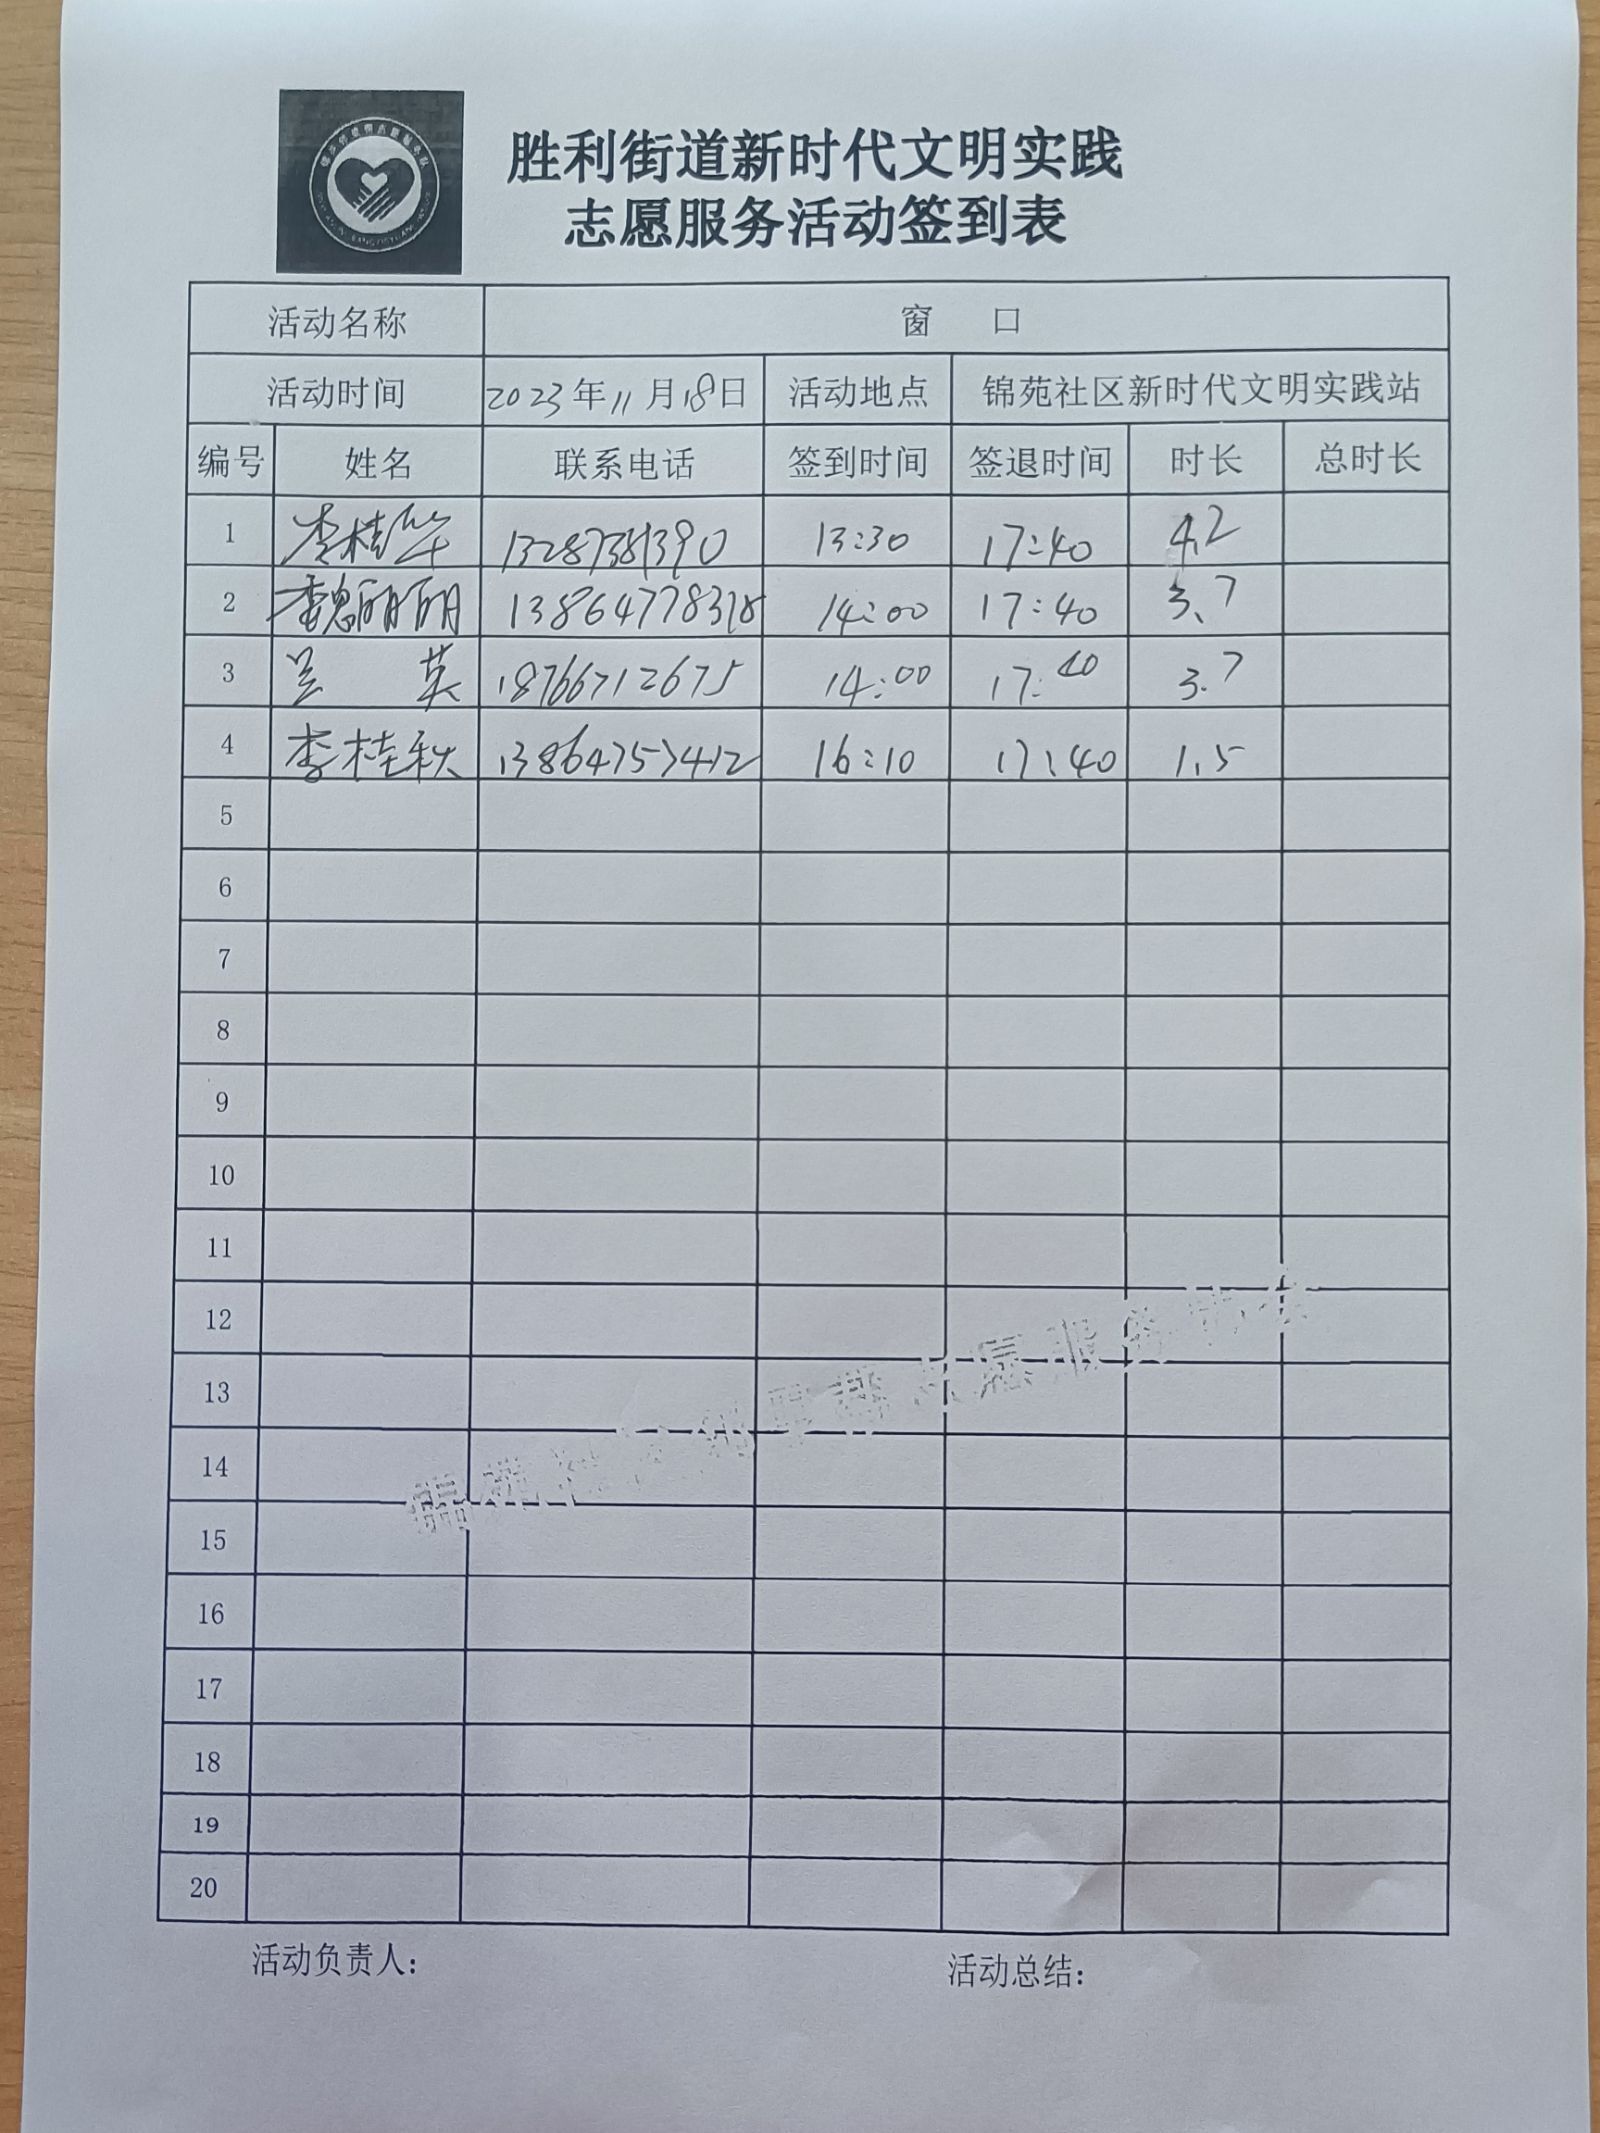 胜利街道新时代文明实践
志愿服务活动签到表
活动名称 窗 口
活动时间 2023年11月18日 活动地点 锦苑社区新时代文明实践站
编号 姓名 联系电话 签到时间 签退时间 时长 总时长
1 李桂华 13287381390 13:30 17:40 4.2
2 魏丽丽 14:00 17:40 3.7
3 兰 英 18766712675 14:00 17:40 3.7
4 李桂秋 13864757412 16:10 17:40 1.5
5
6
7
8
9
10
11
12
13
14
15
16
17
18
19
20
活动负责人: 活动总结: